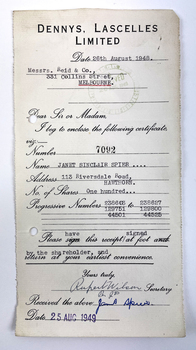 DENNYS, LASCELLES
LIMITED
Date 26th August 1948.
Messrs. Reid & Co.,
331 Collins Street,
MELBOURNE.
Dear Sir or Madam,
I beg to enclose the following certificate,
Number 7092
Name JANET SINCLAIR SPIER ....
Address 113 Riversdale Road,
HAWTHORN.
No. of Shares One hundred...
Progressive Numbers
Please sign this receipt at foot
have signed
by the shareholder, and
return at your earliest convenience.
Yours truly,
Rupert Wilson Secretary
Received the above
Date 25 AUG 1949